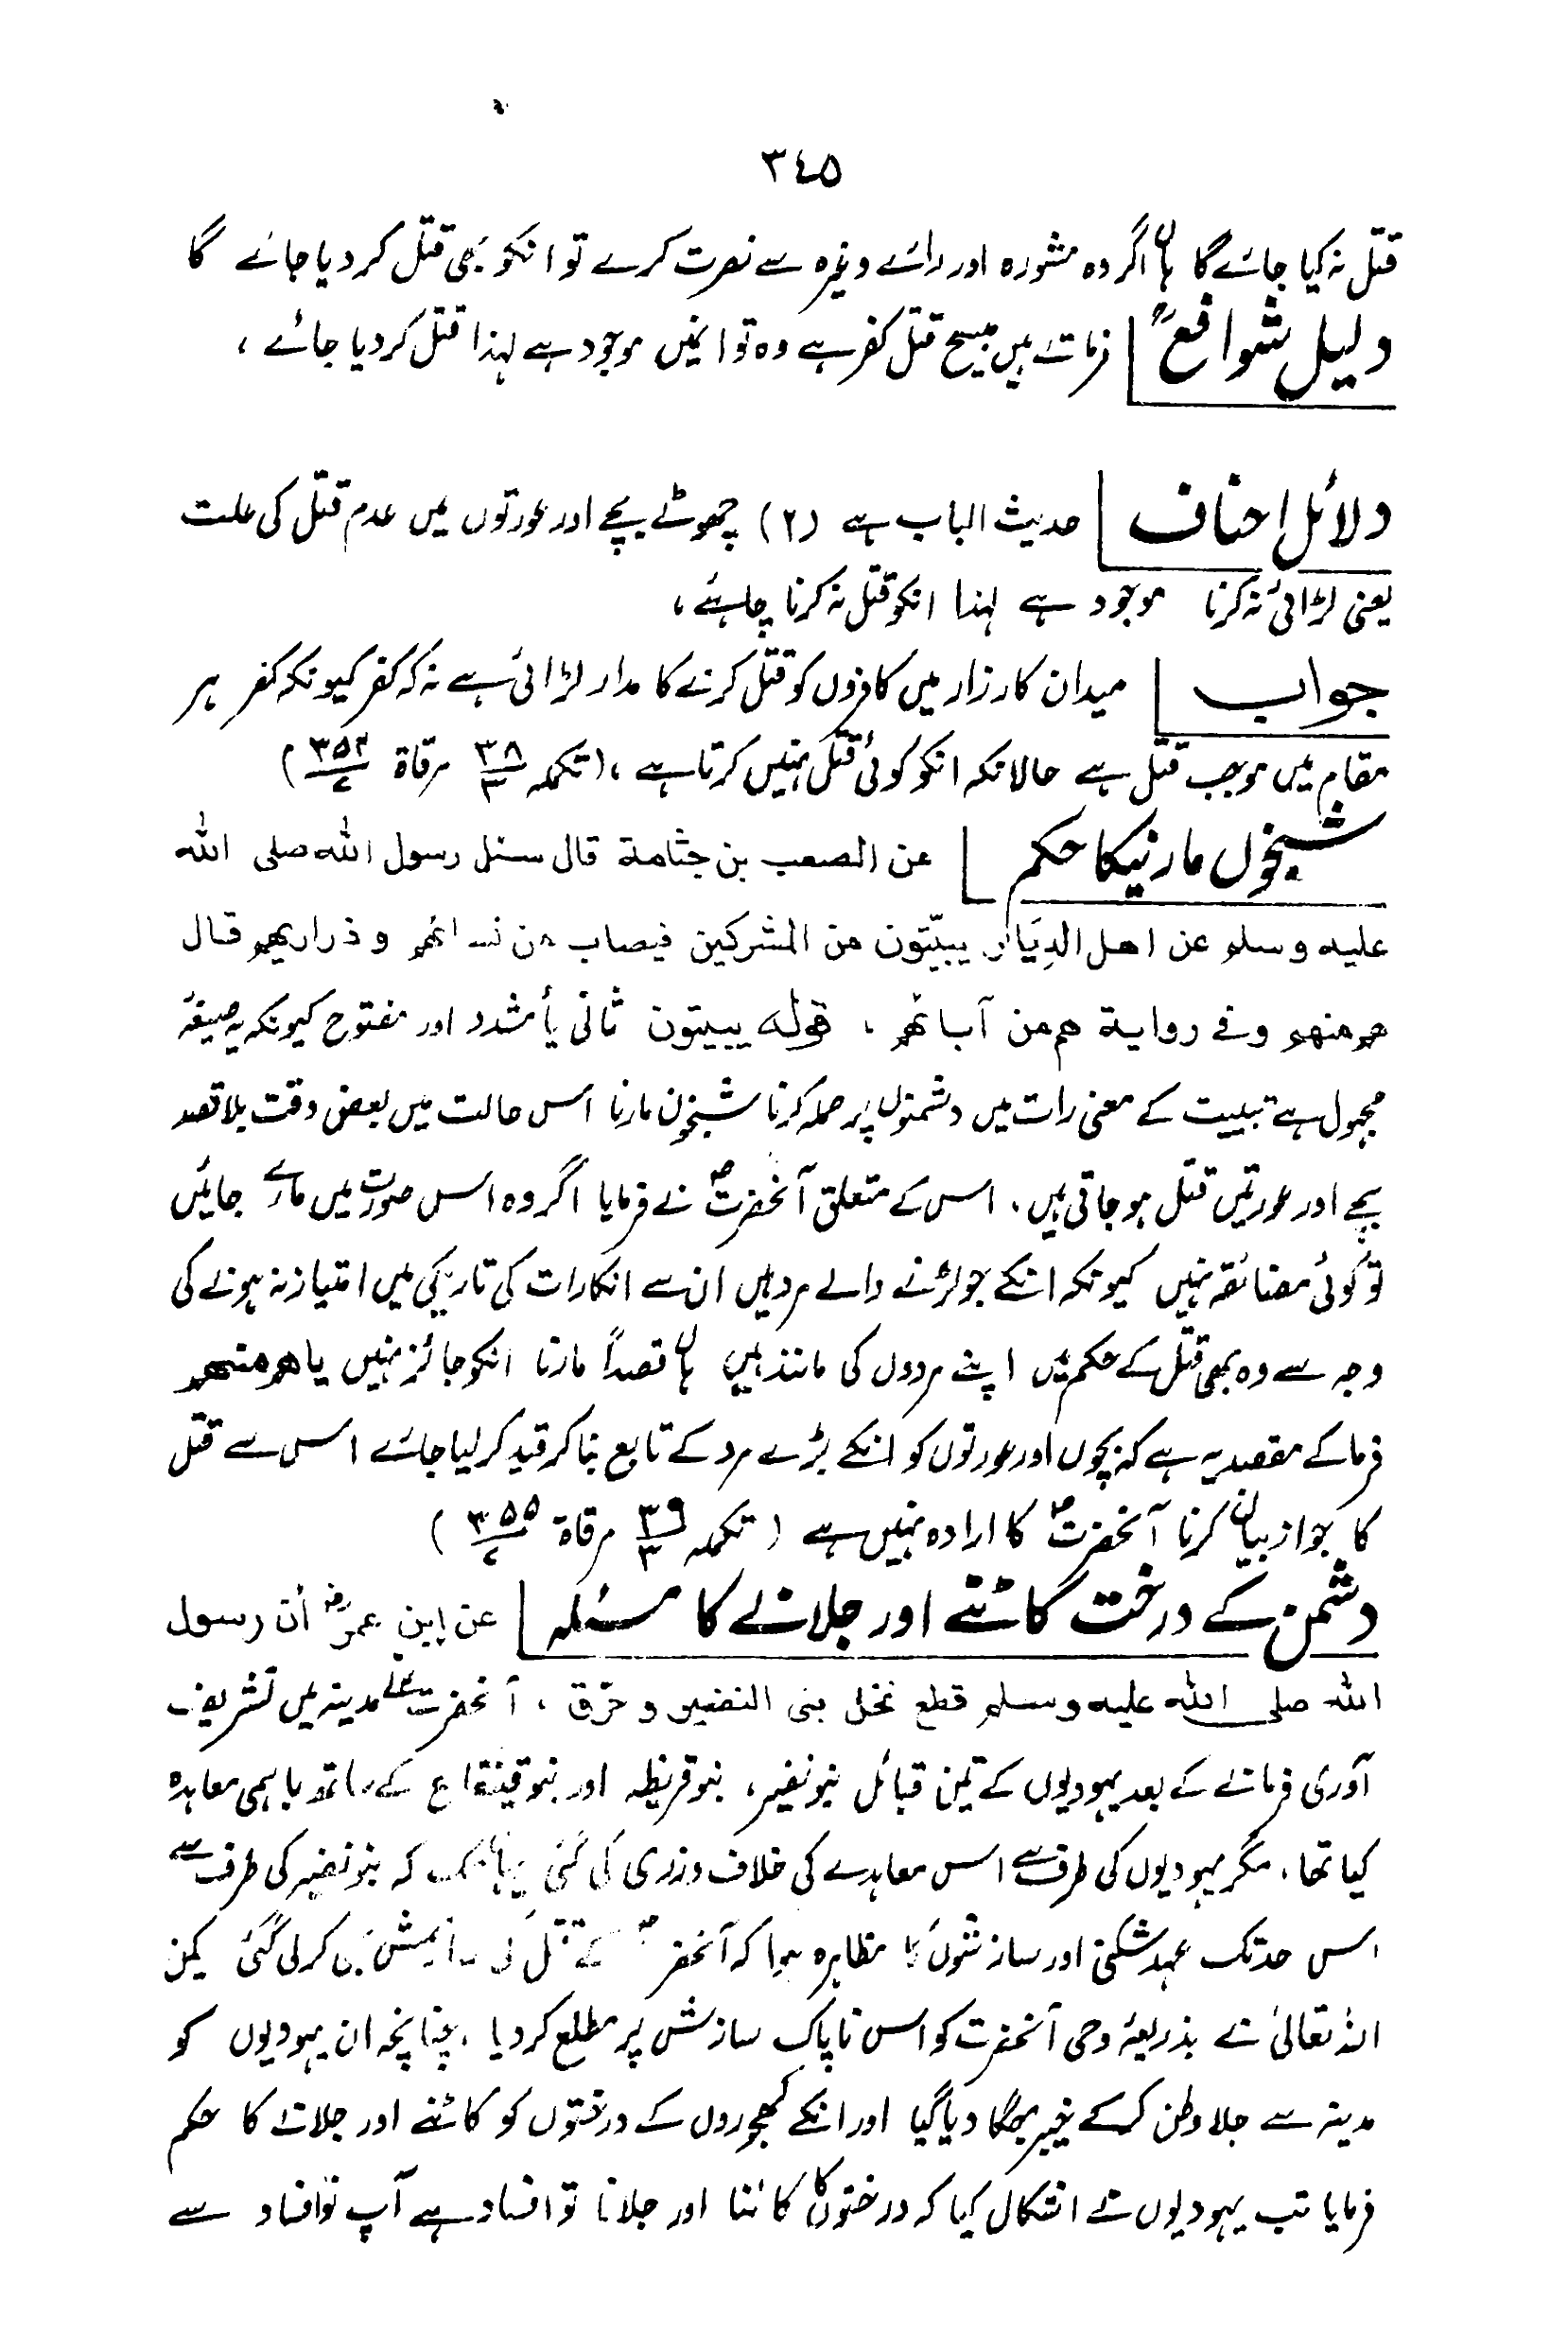 ٣٤٥
قتل نہ کیا جائے گا ہاں اگر وہ مشورہ اور رائے وغیرہ سے نصرت کرے تو انکو بھی قتل کر دیا جائے گا
دلیل شوافعؒ | فرماتے ہیں مبیح قتل کفر ہے وہ تو انمیں موجود ہے لہٰذا قتل کردیا جائے ،
دلائل احناف | حدیث الباب ہے (۲) چھوٹے بچے اور عورتوں میں عدم قتل کی علت
یعنی لڑائی نہ کرنا موجود ہے لہذا انکو قتل نہ کرنا چاہئے ،
جواب | میدان کارزار میں کافروں کو قتل کرنے کا مدار لڑائی ہے نہ کہ کفر کیونکہ کفر ہر
مقام میں موجب قتل ہے حالانکہ انکو کوئی قتل نہیں کرتا ہے ، (تکملہ ٣٨/٣ مرقاۃ ٣٥٣/٤)
شبخوں مارنیکا حکم | عن الصعب بن جثامة قال سئل رسول الله صلى الله
عليه وسلم عن اهل الدِيَار يبيّتون من المشركين فيصاب من نسائهم و ذراريهم قال
هم منهم وفي رواية هم من آبائهم ، قوله يبيتون ثانی یأ مشدد اور مفتوح کیونکہ یہ صیغۂ
مجہول ہے تبییت کے معنی رات میں دشمنوں پر حملہ کرنا شبخون مارنا اس حالت میں بعض وقت بلا قصد
بچے اور عورتیں قتل ہو جاتی ہیں ، اس کے متعلق آنحضرتؐ نے فرمایا اگر وہ اس صورت میں مارے جائیں
تو کوئی مضائقہ نہیں کیونکہ انکے جو لڑنے والے مرد ہیں ان سے انکا رات کی تاریکی میں امتیاز نہ ہونے کی
وجہ سے وہ بھی قتل کے حکم میں اپنے مردوں کی مانند ہیں ہاں قصداً مارنا انکو جائز نہیں یا هم منهم
فرما کے مقصد یہ ہے کہ بچوں اور عورتوں کو انکے بڑے مرد کے تابع بنا کر قید کر لیا جائے اس سے قتل
کا جواز بیان کرنا آنحضرتؐ کا ارادہ نہیں ہے (تکملہ ٣٩/٣ مرقاۃ ٣٥٥/٤)
دشمن کے درخت کاٹنے اور جلانے کا مسئلہ | عن ابن عمرؓ أن رسول
الله صلى الله عليه وسلم قطع نخل بنى النضير وحرّق ، آنحضرتؐ مدینہ میں تشریف
آوری فرمانے کے بعد یہودیوں کے تین قبائل بنو نضیر ، بنو قریظہ اور بنو قینقاع کے ساتھ باہمی معاہدہ
کیا تھا ، مگر یہودیوں کی طرف سے اس معاہدے کی خلاف ورزی کی گئی یہاں تک کہ بنو نضیر کی طرف سے
اس حد تک عہد شکنی اور سازشوں کا مظاہرہ ہوا کہ آنحضرتؐ کے قتل کی کر لی گئی لیکن
اللہ تعالیٰ نے بذریعۂ وحی آنحضرت کو اس ناپاک سازش پر مطلع کر دیا ، چنانچہ ان یہودیوں کو
مدینہ سے جلا وطن کرکے خیبر بھگا دیا گیا اور انکے کھجوروں کے درختوں کو کاٹنے اور جلانے کا حکم
فرمایا تب یہودیوں نے اشکال کیا کہ درختوں کا کاٹنا اور جلانا تو افساد ہے آپ تو افساد سے